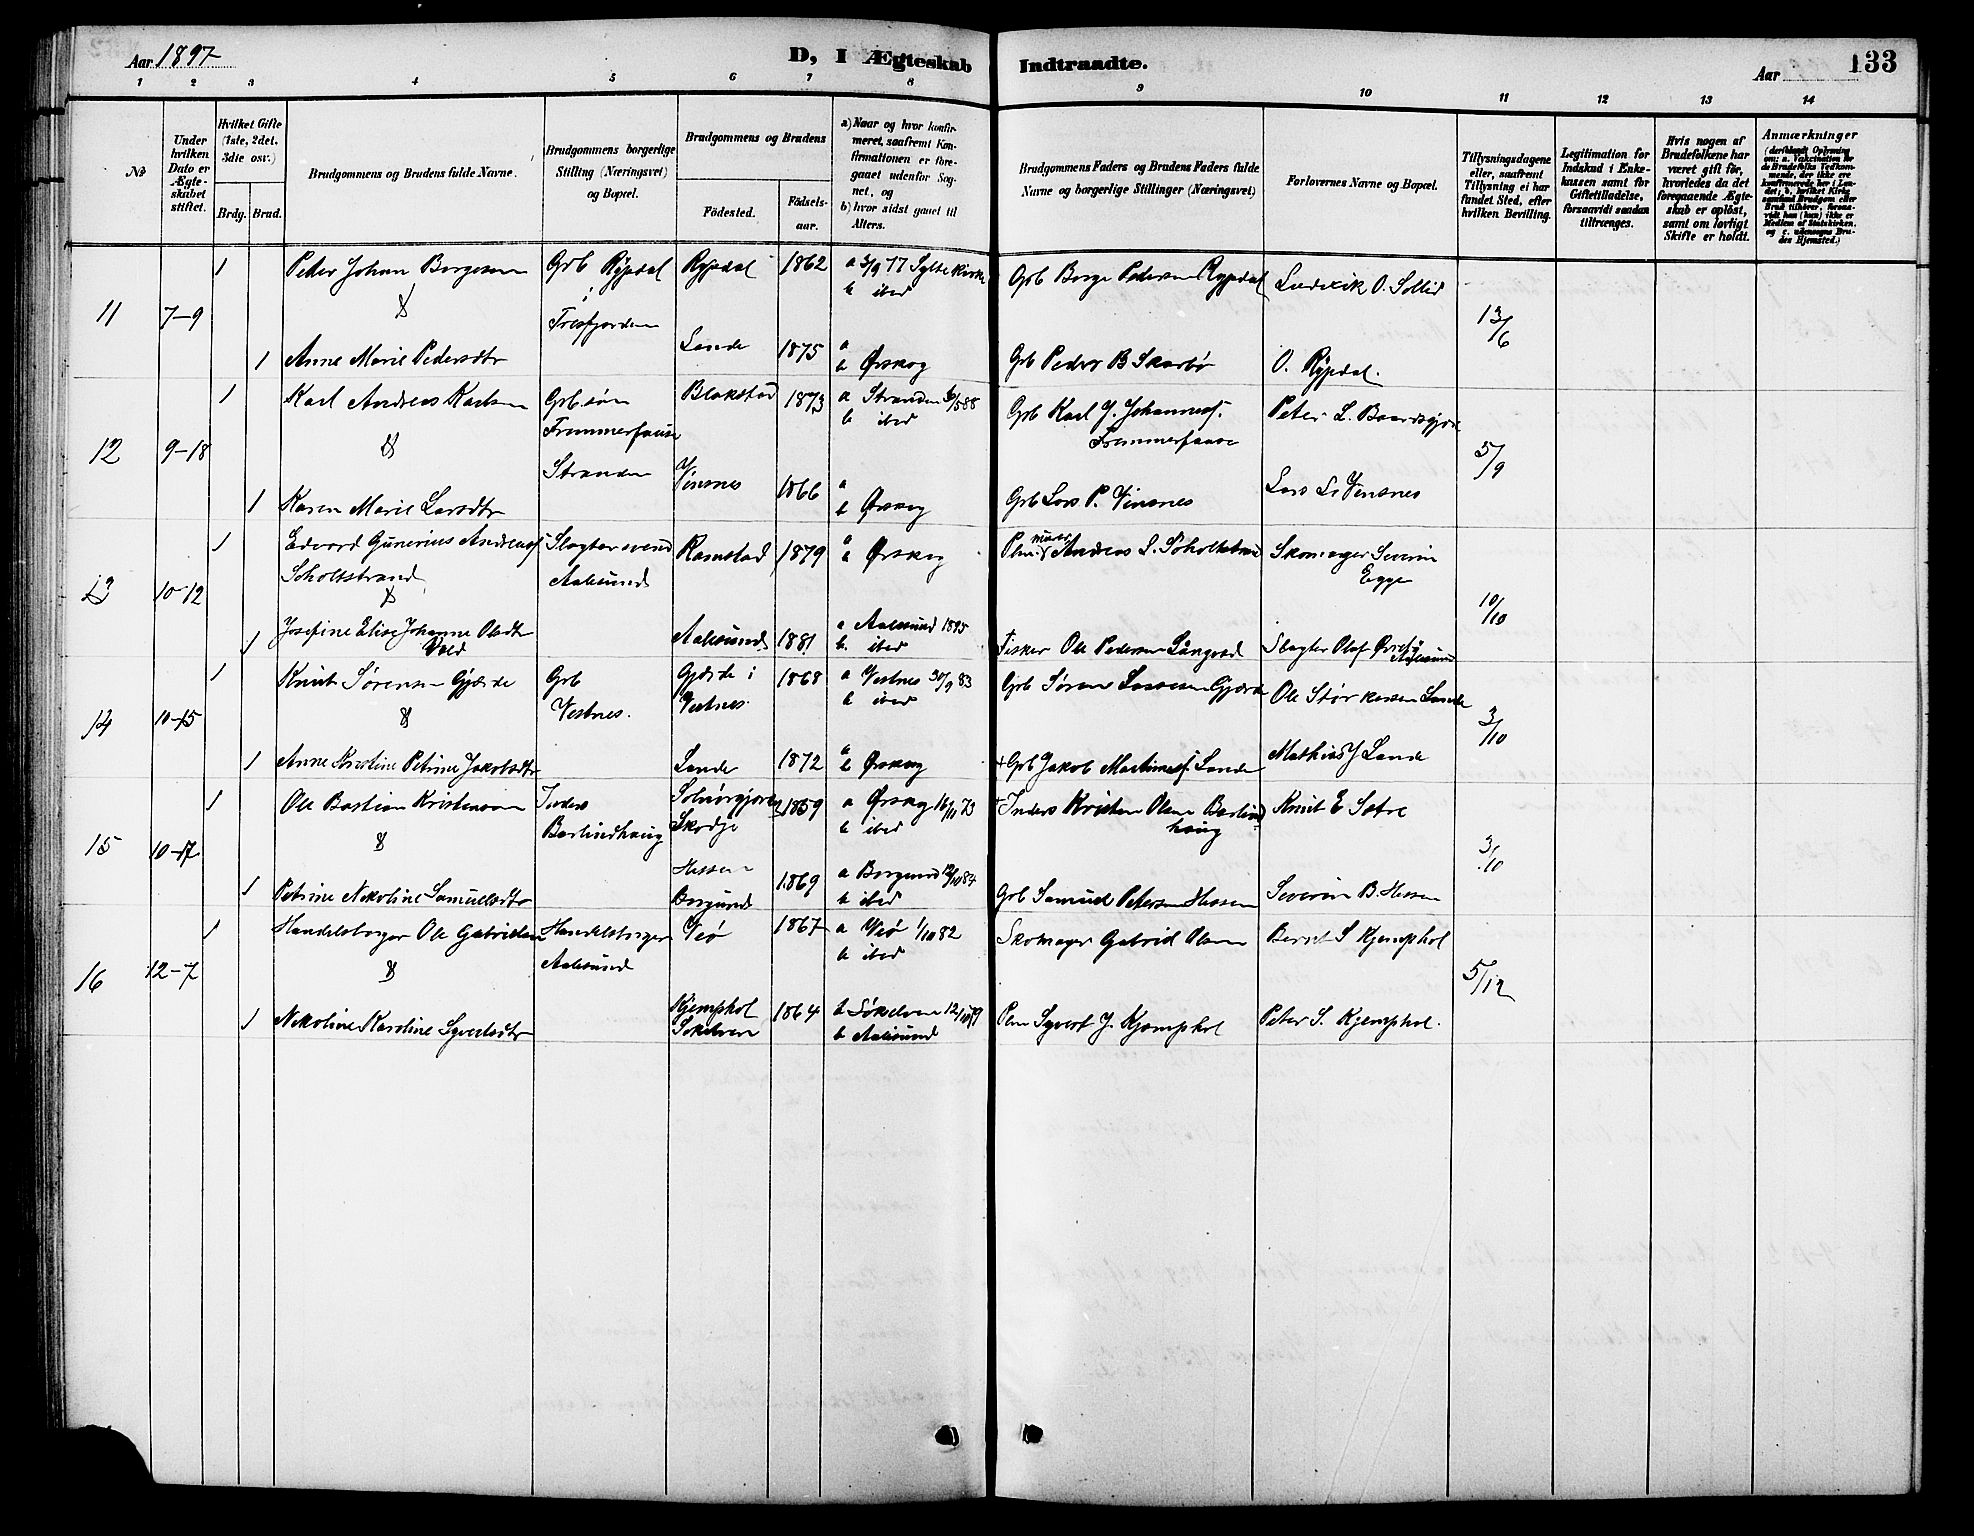 Aar 1897
D, I Ægteskab Indtraadte.
Aar
133
1 2 3 4 5 6 7 8 9 10 11 12 13 14
No
Under hvilken Dato er Ægteskabet stiftet.
Hvilket Gifte (1ste, 2det, 3die osv.)
Brdg. Brud.
Brudgommens og Brudens fulde Navne.
Brudgommens borgerlige Stilling (Næringsvei) og Bopæl.
Brudgommens og Brudens
Födested.
Födselsaar.
a) Naar og hvor konfirmeret, saafremt Konfirmationen er foregaaet udenfor Sognet, og
b) hvor sidst gaaet til Alters.
Brudgommens Faders og Brudens Faders fulde Navne og borgerlige Stillinger (Næringsvei)
Forlovernes Navne og Bopæl.
Tillysningsdagene eller, saafremt Tillysning ei har fundet Sted, efter hvilken Bevilling.
Legitimation for Indskud i Enkekassen samt for Giftetilladelse, forsaavidt saadan tiltrænges.
Hvis nogen af Brudefolkene har været gift för, hvorledes da det foregaaende Ægteskab er oplöst, samt om lovligt Skifte er holdt.
Anmærkninger
11 7-9 1 Peter Johan Borgesen Grb Rypdal Rypdal 1862 a 3/9 77 Sylte Kirke Grb Borge Pedersen Rypdal Ludevik O. Sollid
& i b ibid
Tresfjorden 13/6
1 Anne Marie Pedersdtr Lande 1875 a
b Ørskog Grb Peder B Skarbø O. Rypdal.
12 9-18 1 Karl Andreas Karlsen Grb.søn Blakstad 1873 a Stranden 30/5 88 Grb Karl J. Johannesf. Peter L. Baardsgjære
Fremmerfause b ibid Fremmerfause
& Stranden 5/9
1 Karen Marie Larsdtr Vinsnes 1866 a
b Ørskog Grb Lars P. Vinsnes Lars L. Vinsnes
13 10-12 1 Edvard Gunerius Andreasf Slagtersvend Ramstad 1879 a
b Ørskog Andreas L. Søholtstrand Skomager Severin
Soholtstrand Aalesund Egge
& 10/10
1 Josefine Elise Johanne Olsdtr Aalesund 1881 a Aalesund 1895
b. ibid Fisker Ole Pedersen Slagter Olaf
Aalesund
14 10-15 1 Knut Sørensen Gjærde Grb Gjærde i 1868 a Vestnes 30/9 83 Grb Søren Lassesen Gjærde Ole Størkersen Lande
Vestnes. Vestnes. b ibid
& 3/10
1 Anne Kristine Petrine Jakobsdtr Lande 1872 a
b Ørskog + Grb Jakob Martinusf. Lande Mathias J Lande
15 10-17 1 Ole Bastian Kristensen Inders Solnørgjære 1859 a Ørskog 16/11 73 Inders Kristen Olsen Barlind Knut E Sætre
Barlindhaug Skodje b ibid haug
& 3/10
1 Petrine Nikoline Samuelsdtr Hessen 1869 a Borgund 84
Borgund b ibid Grb Samuel Petersen Hessen Severin B. Hessen
16 12-7 1 Handelsborger Ole Gabrielsen Handelsborger Veø 1867 a Veø 1/10 82 Skomager Gabriel Olsen Bernt S Kjemphol
Aalesund b ibid
& 5/12
1 Nikoline Karoline Syvertsdtr Kjemphol 1864 a Søkelven 12/10 79 Plm Syvert J. Kjemphol Peter S. Kjemphol.
Sökelven b Aalesund